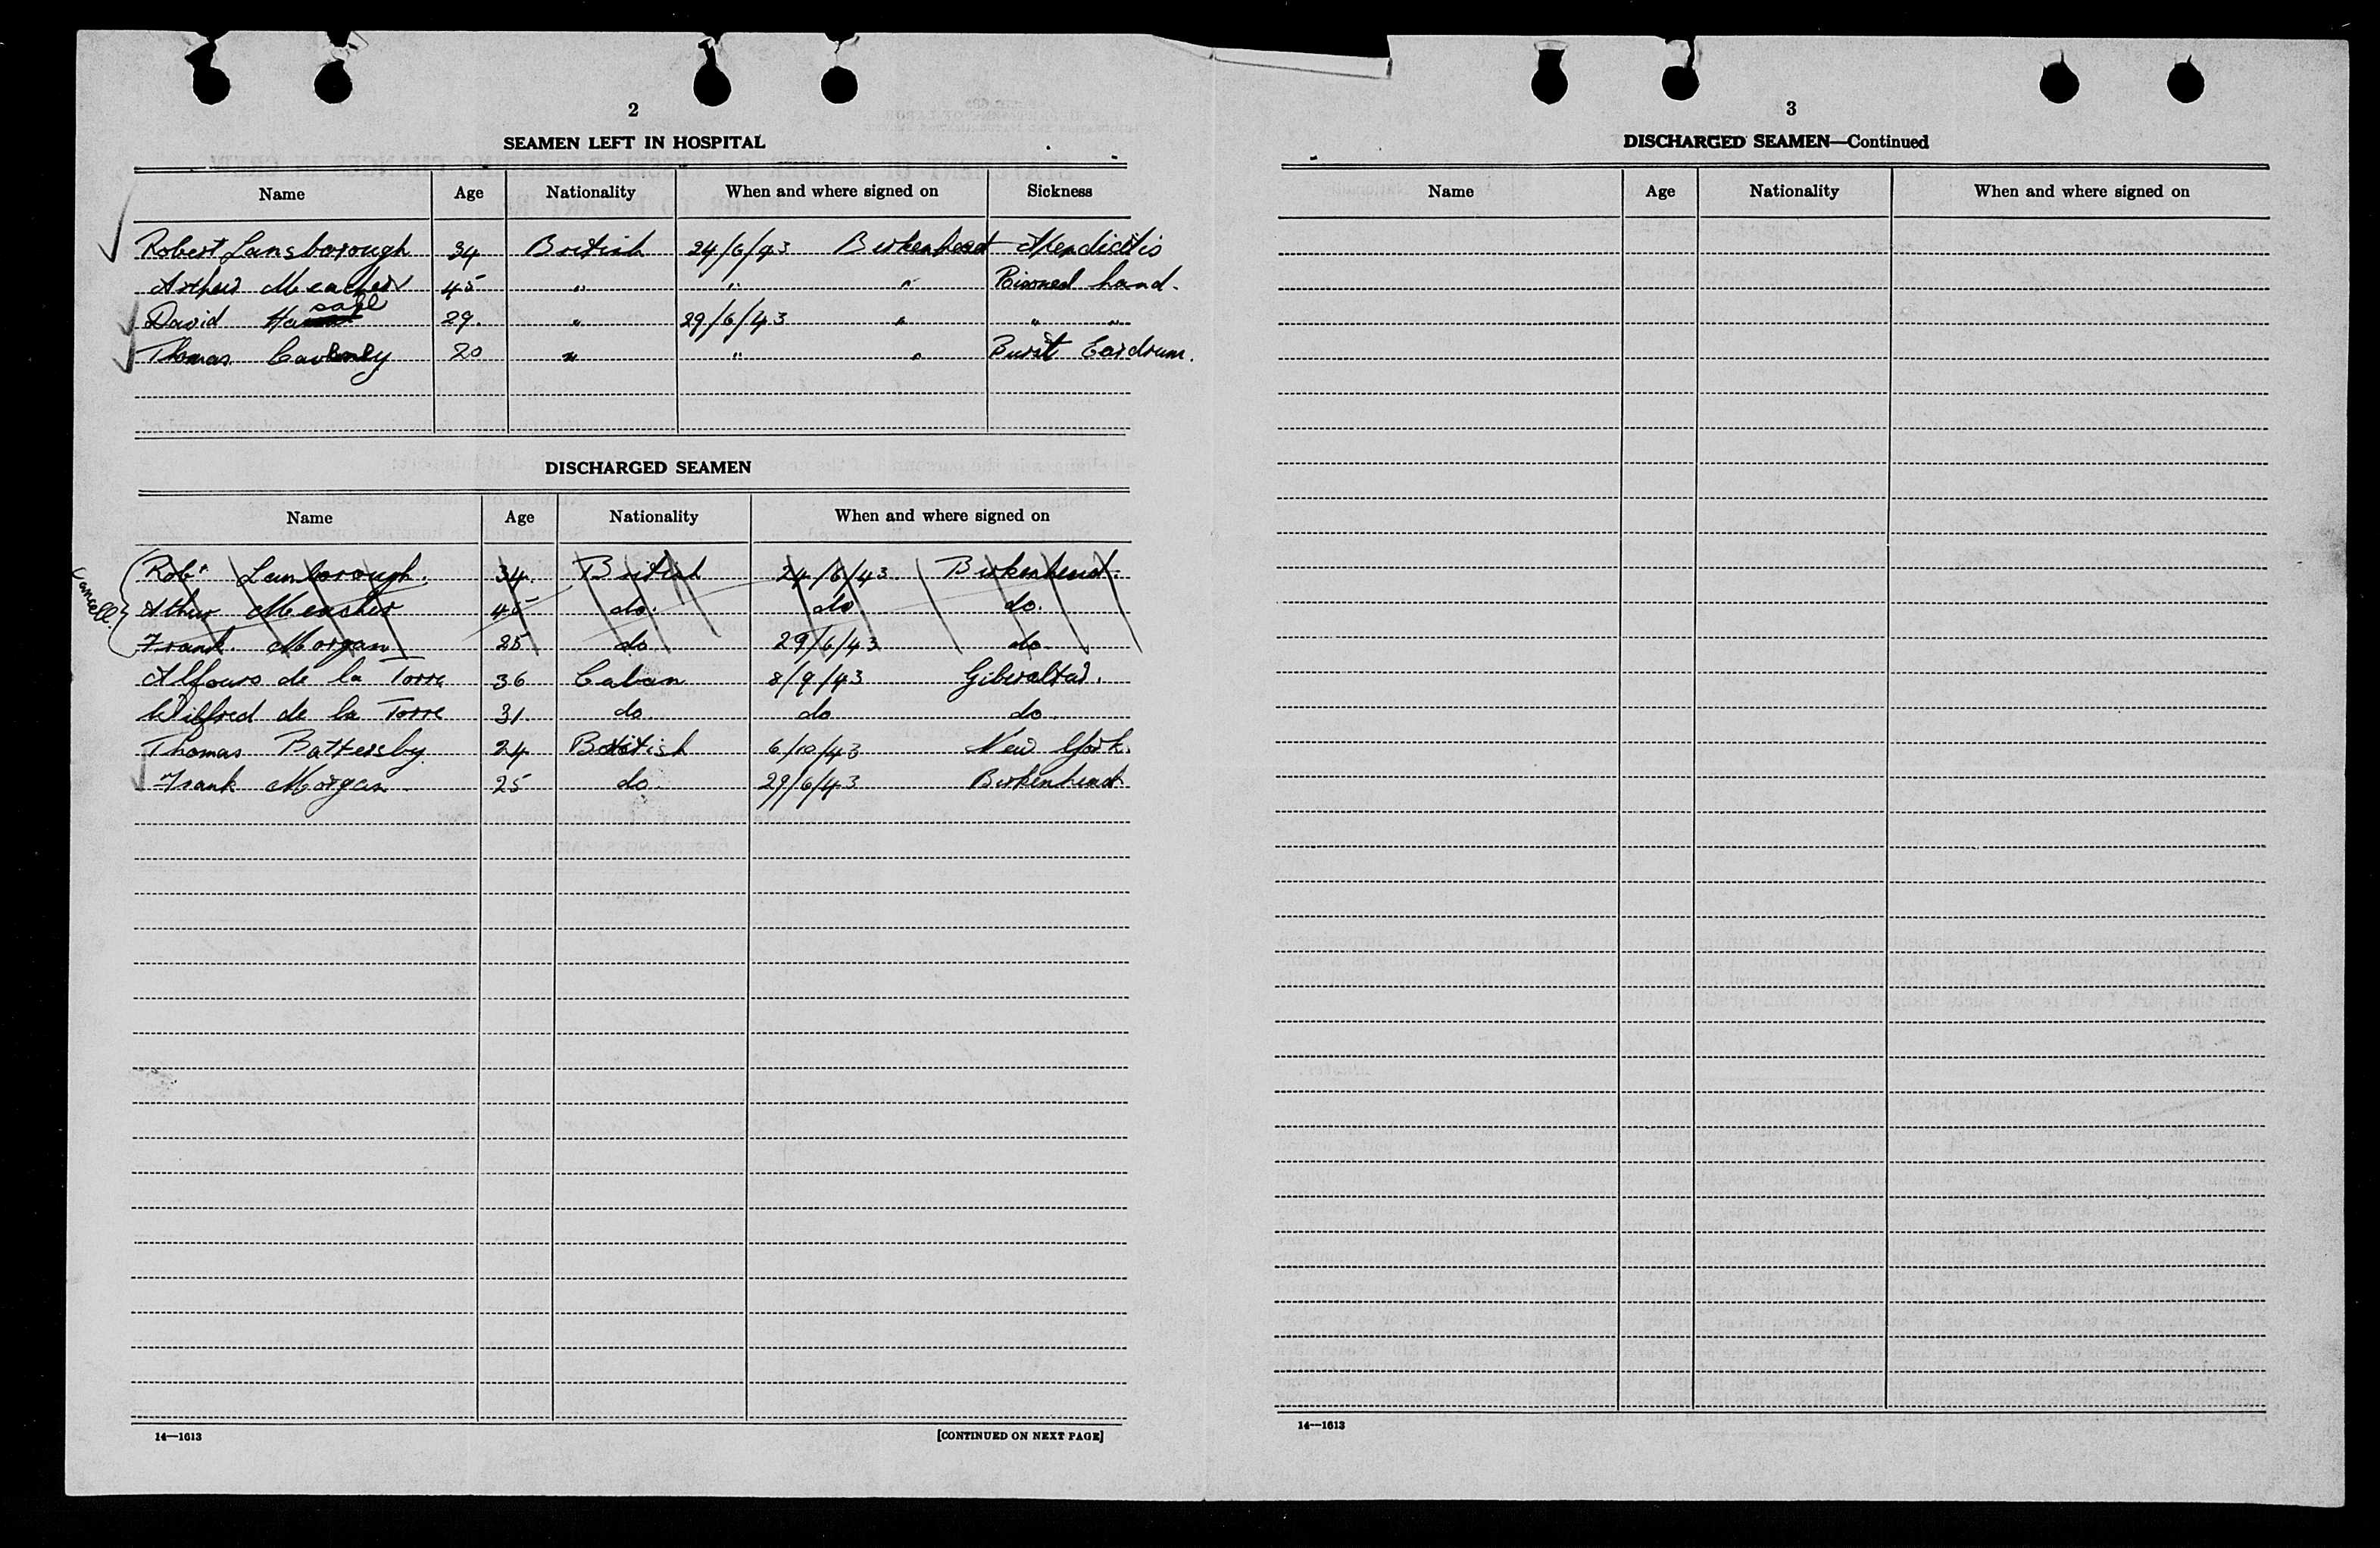 2
SEAMEN LEFT IN HOSPITAL
Name Age Nationality When and where signed on Sickness
Robert Lansborough 34 British 24/6/43 Birkenhead Apendicitis
Arthur Meacher 45 " " " Poisoned hand.
David Hassall 29. " 29/6/43 " " "
Thomas 20 " " " Burst Eardrum.
DISCHARGED SEAMEN
Name Age Nationality When and where signed on
Cancell
Robt Lansborough. 34. British 24/6/43 Birkenhead.
Athur Meacher 45 do. do do.
Frank Morgan 25 do 29/6/43 do.
Alfonso de la Torre 36 Cuban 8/9/43 Giberaltar.
Wilfred de la Torre 31. do. do do.
Thomas Battersby 24 British 6/10/43 New York.
Frank Morgan 25 do. 29/6/43 Birkenhead
14—1613 [CONTINUED ON NEXT PAGE]
3
DISCHARGED SEAMEN—Continued
Name Age Nationality When and where signed on
14—1613